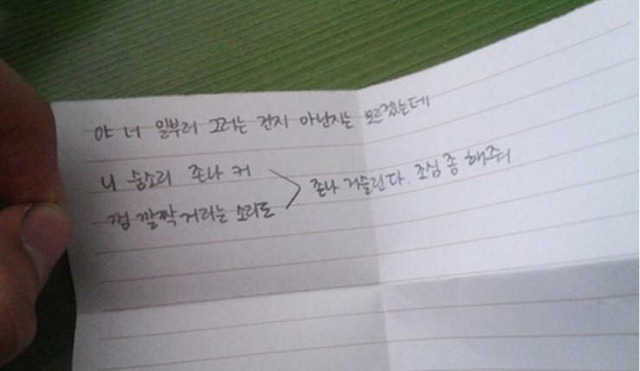 야 너 일부러 그러는 건지 아닌지는 모르겠는데
니 숨소리 존나 커
껌 깔짝거리는 소리도
존나 거슬린다. 조심 좀 해줘